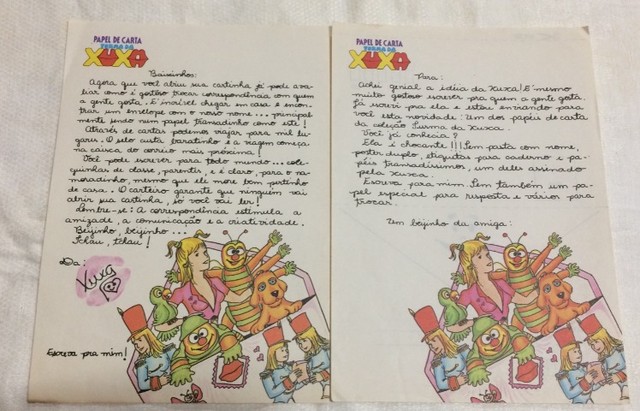 PAPEL DE CARTA
TURMA DA
XUXA
Baixinhos:
Agora que você abriu sua cartinha já pode ava-
liar como é gostoso trocar correspondência com quem
a gente gosta. É incrível chegar em casa e encon-
trar um envelope com o nosso nome... principal-
mente sendo num papel transadinho como este!
Através de cartas podemos viajar para mil lu-
gares. O selo custa baratinho e a viagem começa
na caixa do correio mais próxima!
Você pode escrever para todo mundo... cole-
guinhas de classe, parentes, e é claro, para o na-
moradinho, mesmo que ele more bem pertinho
de casa. O carteiro garante que ninguém vai
abrir sua cartinha, só você vai ler!
Lembre-se: A correspondência estimula a
amizade, a comunicação e a criatividade.
Beijinho, beijinho...
Tchau, tchau!
Da:
Xuxa
Escreva pra mim!
PAPEL DE CARTA
TURMA DA
XUXA
Para:
Achei genial a idéia da Xuxa! É mesmo
muito gostoso escrever pra quem a gente gosta.
Já escrevi pra ela e estou enviando para
você esta novidade: Um dos papéis de carta
da coleção Turma da Xuxa.
Você já conhecia?
Ela é chocante!!! Tem pasta com nome,
poster duplo, etiquetas para caderno e pa-
péis transadíssimos, um deles assenado
pela Xuxa.
Escreva para mim. Tem também um pa-
pel especial para resposta e vários para
trocar.
Um beijinho da amiga: